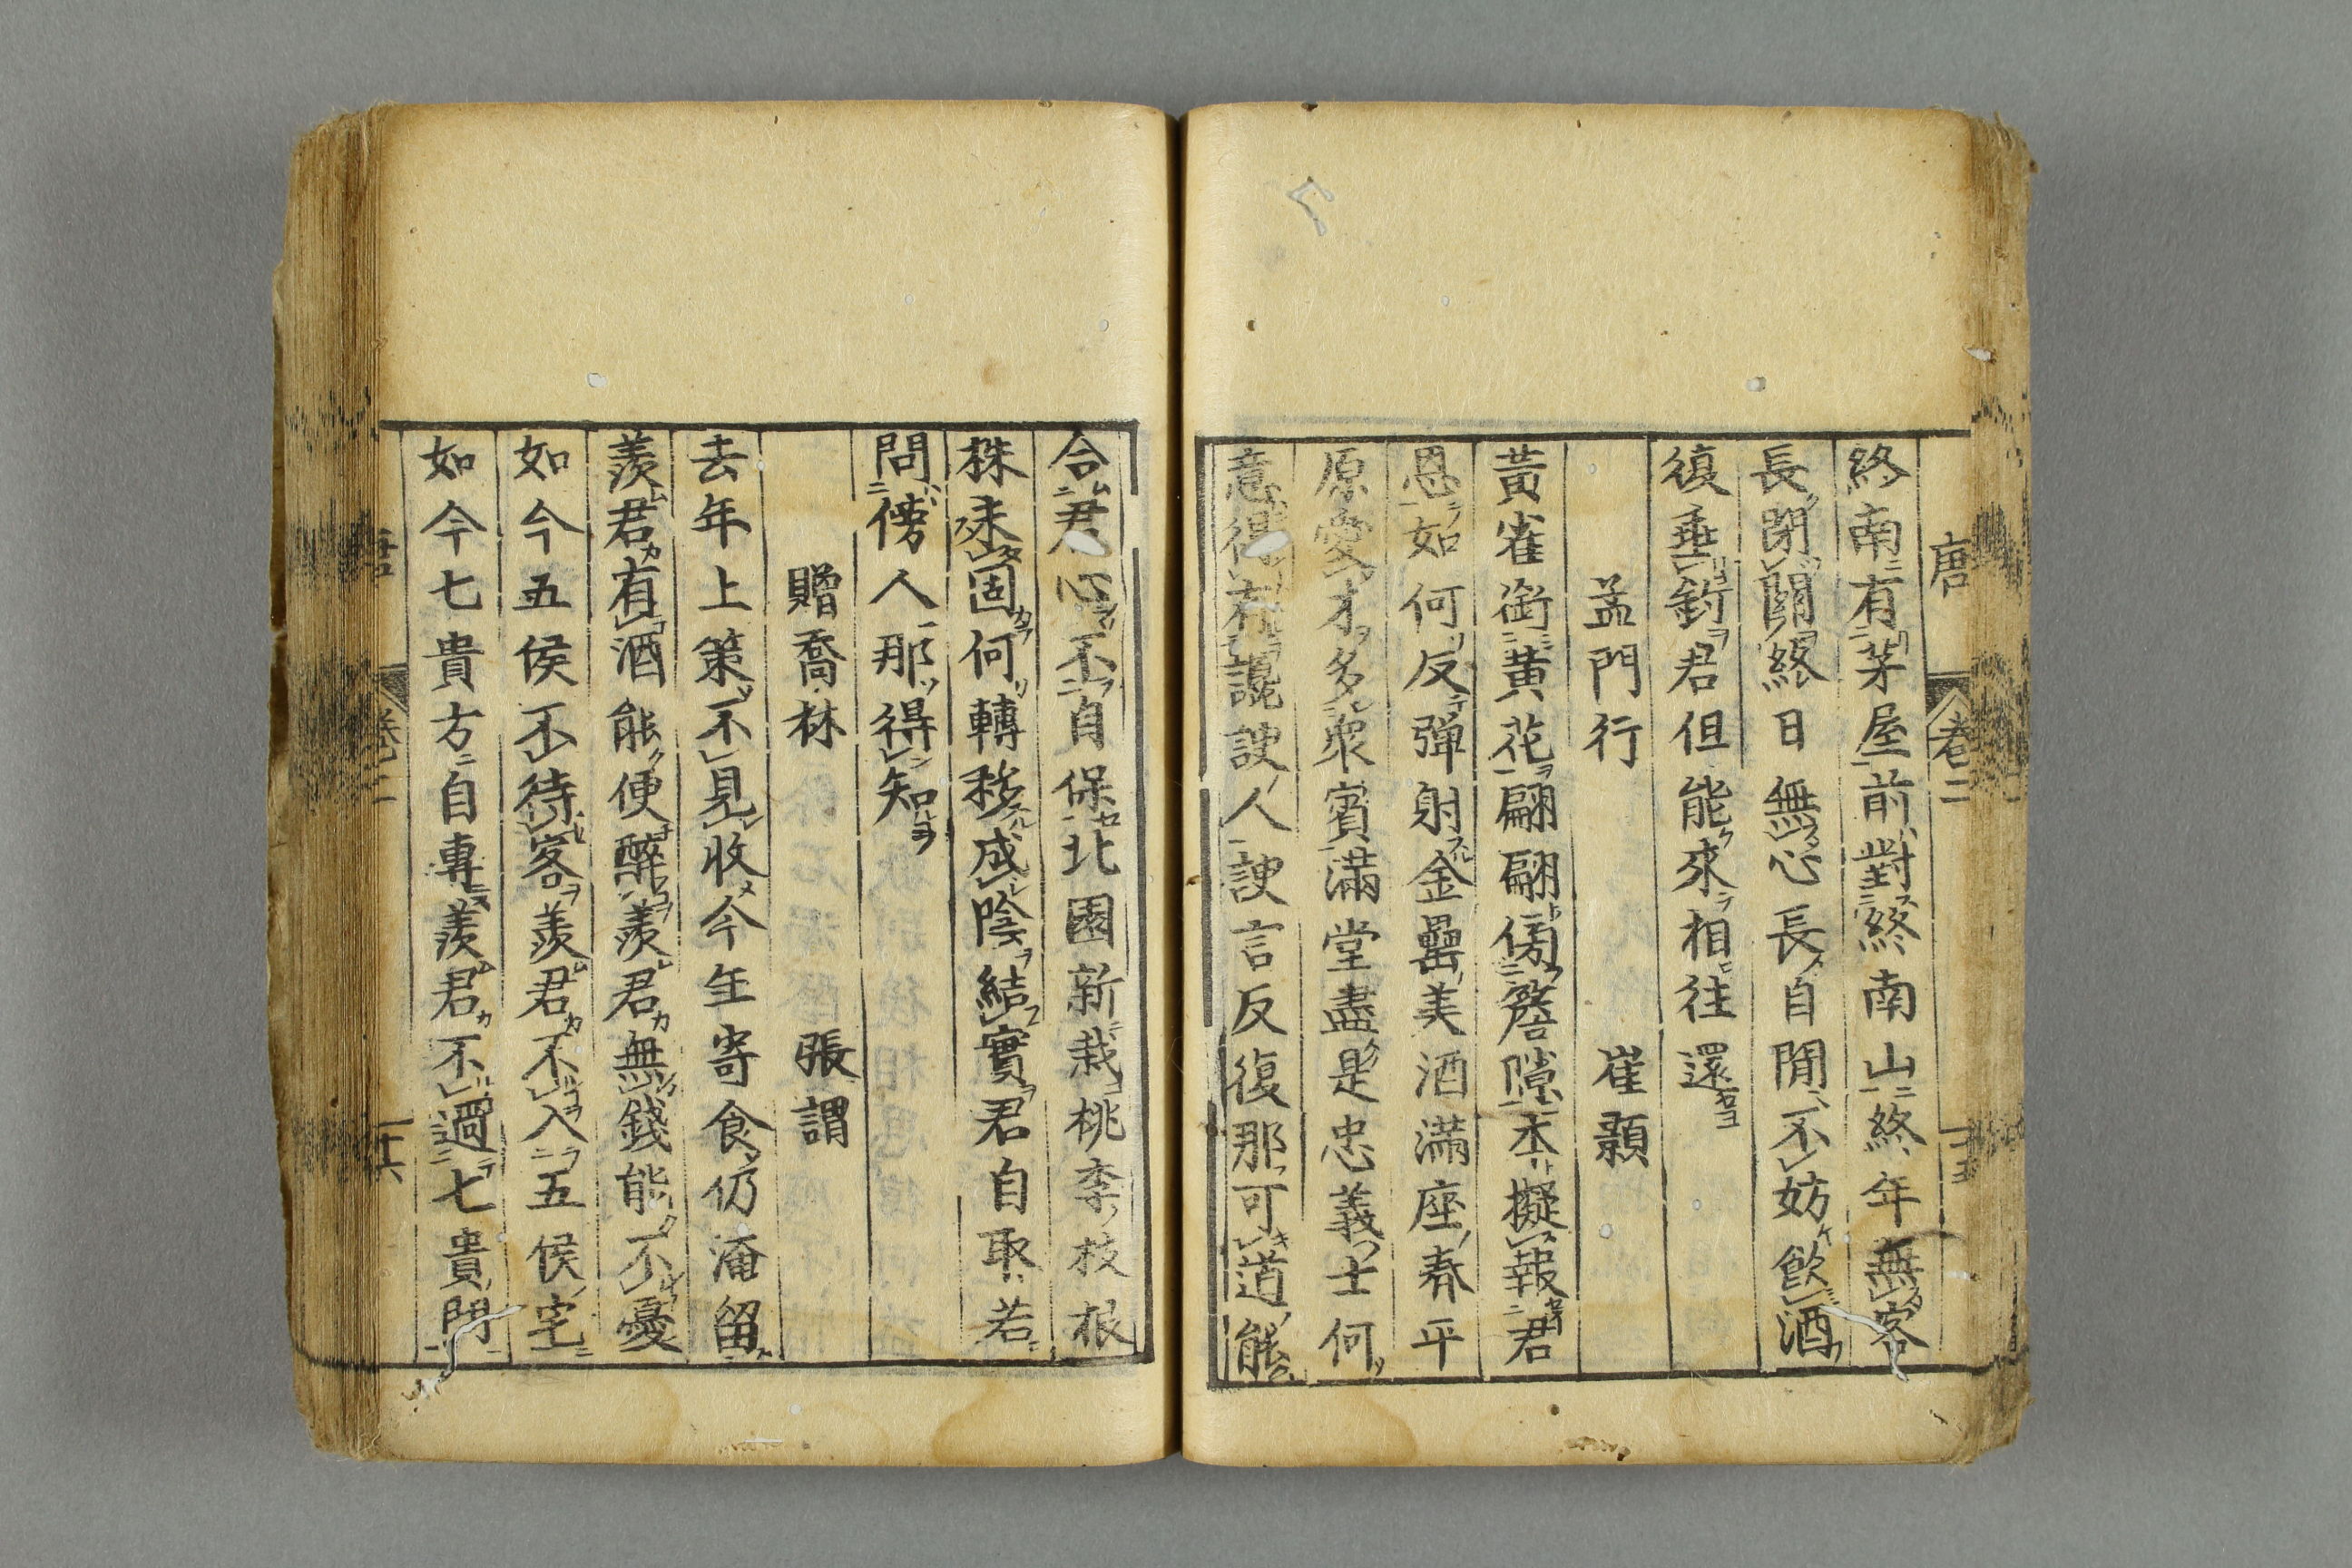 唐 卷二 十五
終南有茅屋前對終南山終年無客
長閉關終日無心長自閒不妨飲酒
復垂釣君但能來相往還
孟門行 崔顥
黃雀銜黃花翩翩傍簷隙本擬報君
恩如何反彈射金罍美酒滿座春平
原愛才多衆賓滿堂盡是忠義士何
意得有讒諛人諛言反復那可道能
令君心不自保北園新栽桃李枝根
株未固何轉移成陰結實君自取若
問傍人那得知
贈喬林 張謂
去年上策不見收今年寄食仍淹留
羨君有酒能便醉羨君無錢能不憂
如今五侯不待客羨君不入五侯宅
如今七貴方自專羨君不過七貴門
卷二 十六